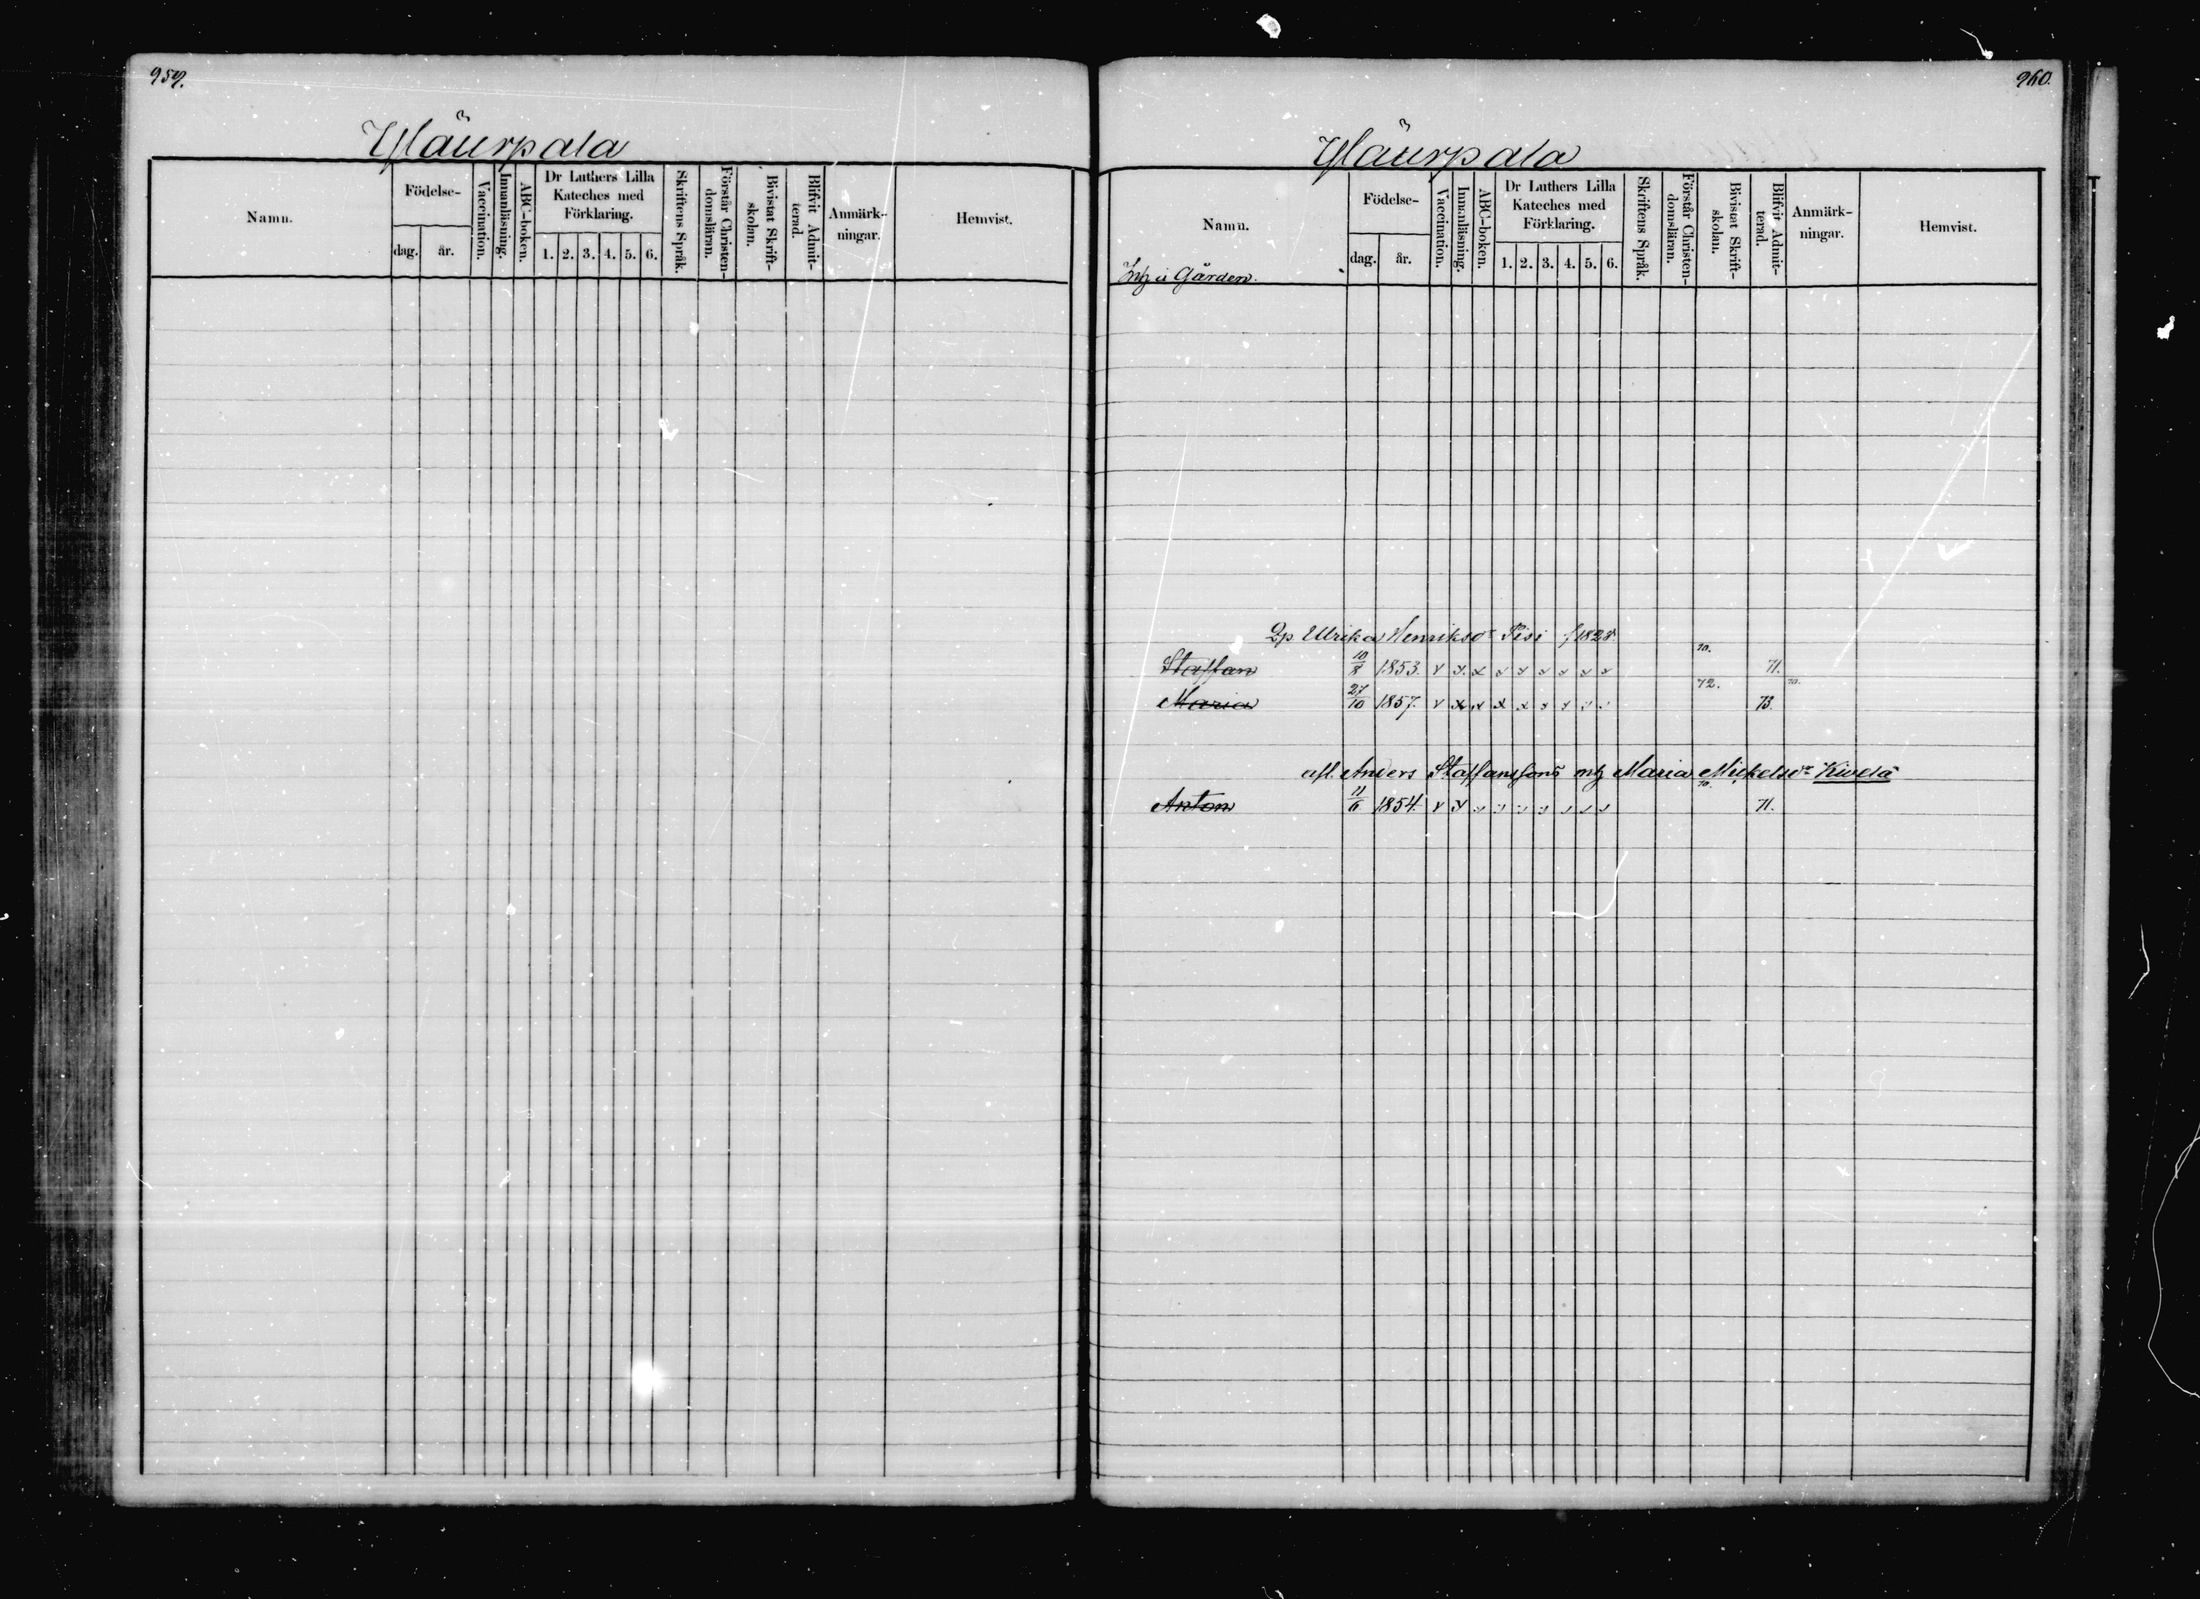 959.
Yläurpala
Namn.
Födelse-
dag. år.
Vaccination.
Innanläsning.
ABC-boken.
Dr Luthers Lilla
Kateches med
Förklaring.
1. 2. 3. 4. 5. 6.
Skriftens Språk.
Förstår Christen-
domsläran.
Bivistat Skrift-
skolan.
Blifvit Admit-
terad.
Anmärk-
ningar.
Hemvist.
960.
Yläurpala
Namn.
å Gården.
Födelse-
dag. år.
Vaccination.
Innanläsning.
ABC-boken.
Dr Luthers Lilla
Kateches med
Förklaring.
1. 2. 3. 4. 5. 6.
Skriftens Språk.
Förstår Christen-
domsläran.
Bivistat Skrift-
skolan.
Blifvit Admit-
terad.
Anmärk-
ningar.
Hemvist.
Ulrika Henriksdr Pisi f 1828. 70.
Staffan 10/8 1853. x x. x x x x x x x 71.
72. 70.
Maria 27/10 1857. x x x x x x x x x 73.
afl. Anders Staffanssons Maria Mickelsdr Kivelä
70.
Anton 11/6 1854. x x x x x x x x x 71.